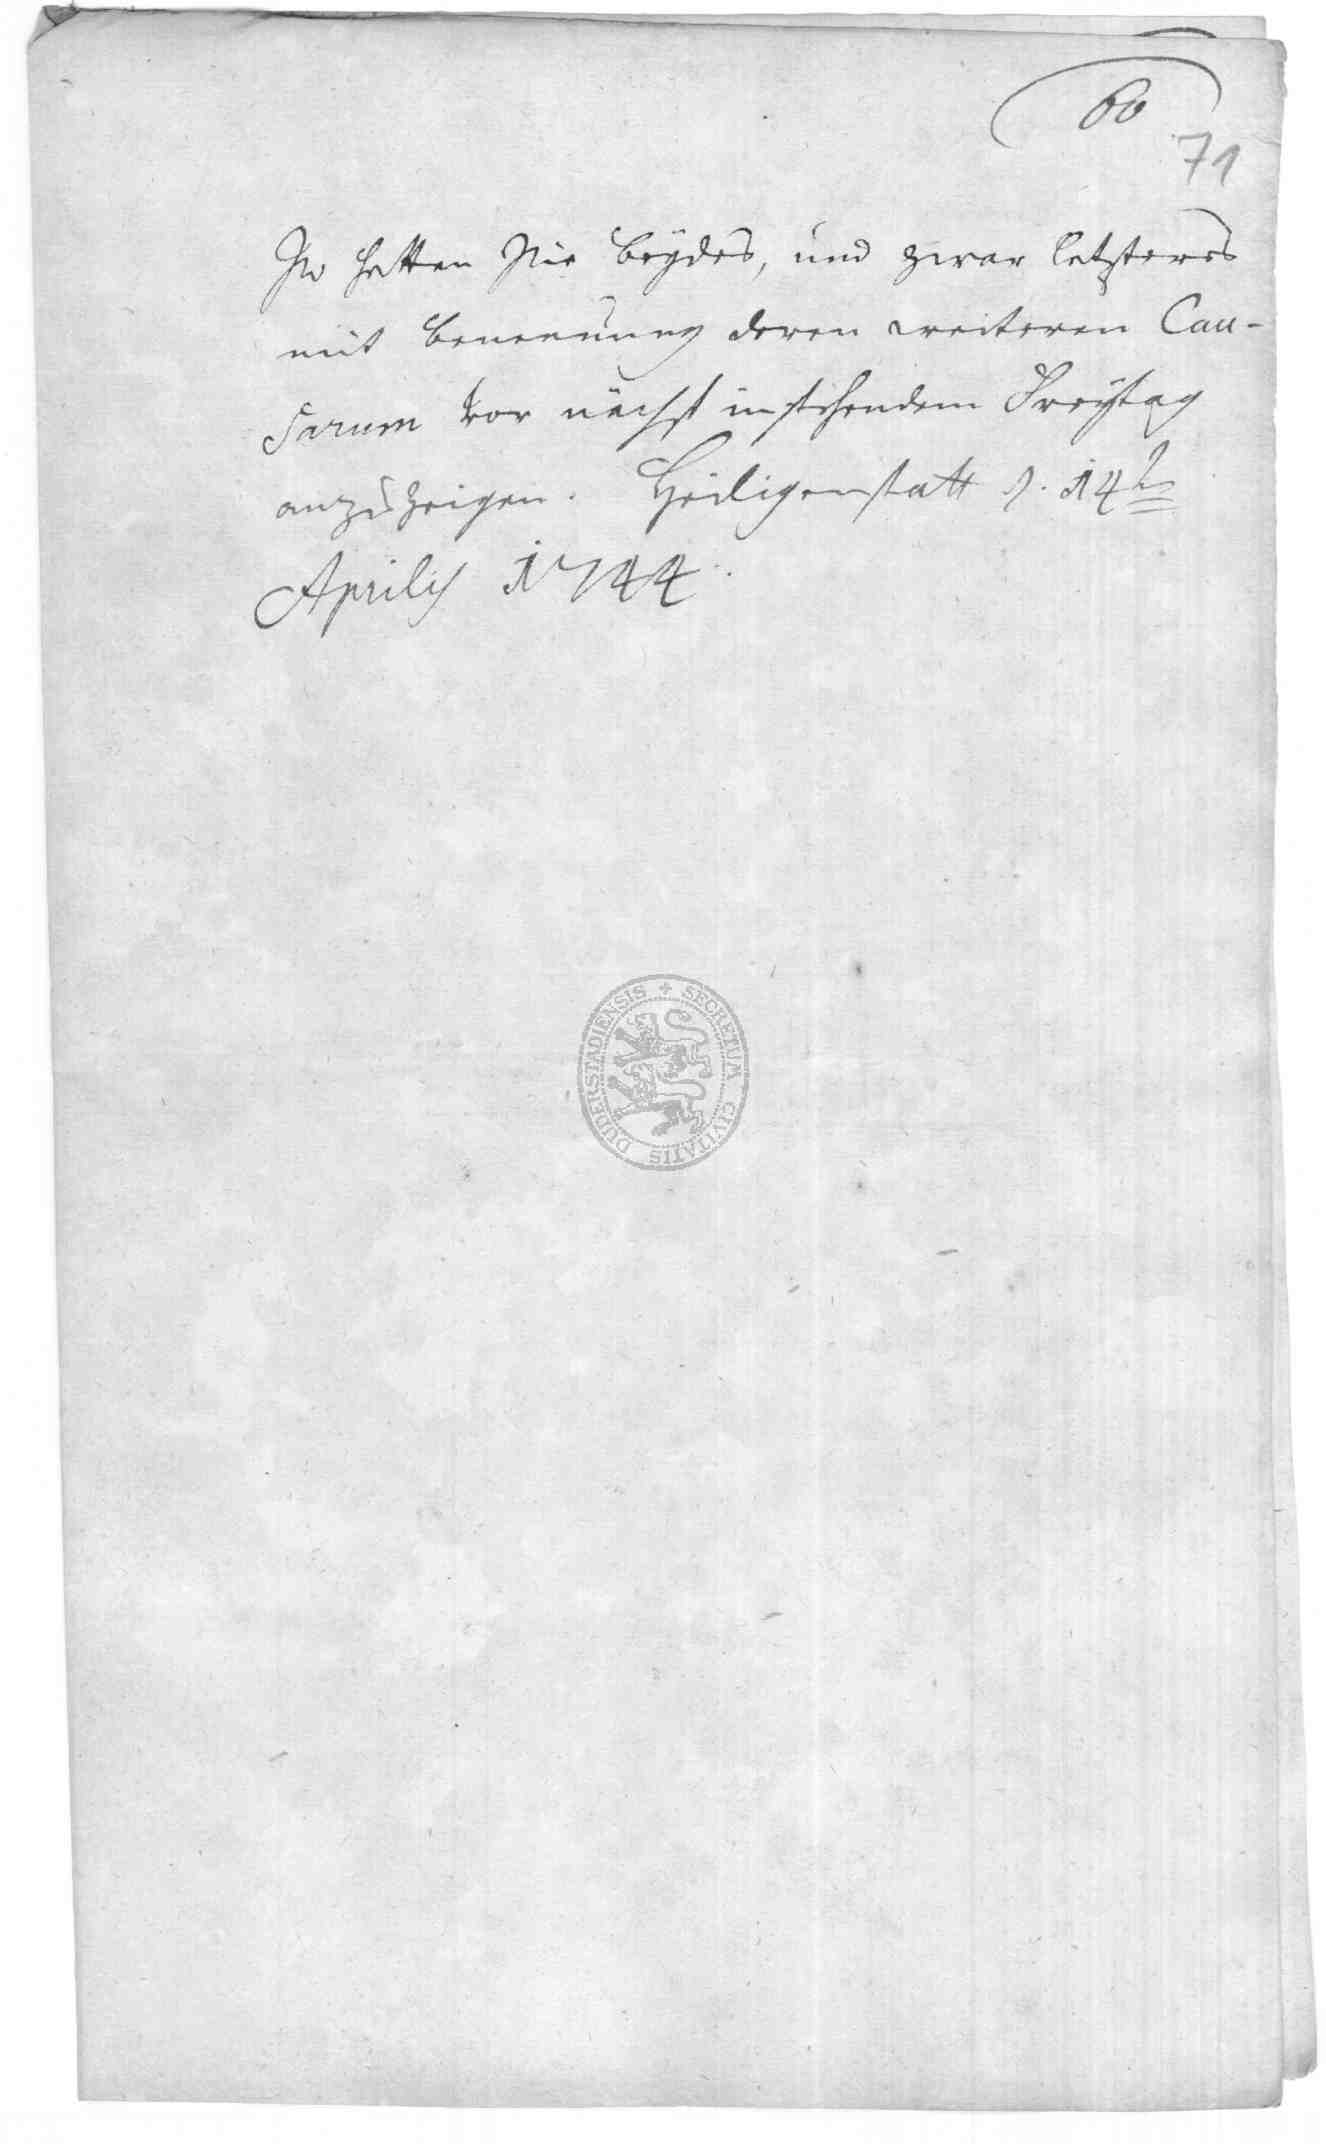 60
71
So hetten Sie beydes, und zwar letzteres
mit benennung deren weiteren Cau-
sarum vor nächst instehendem Freytag
anzuzeigen. Heiligenstatt d. 14t
Aprilis 1744.
SECRETUM CIVITATIS DUDERSTADIENSIS